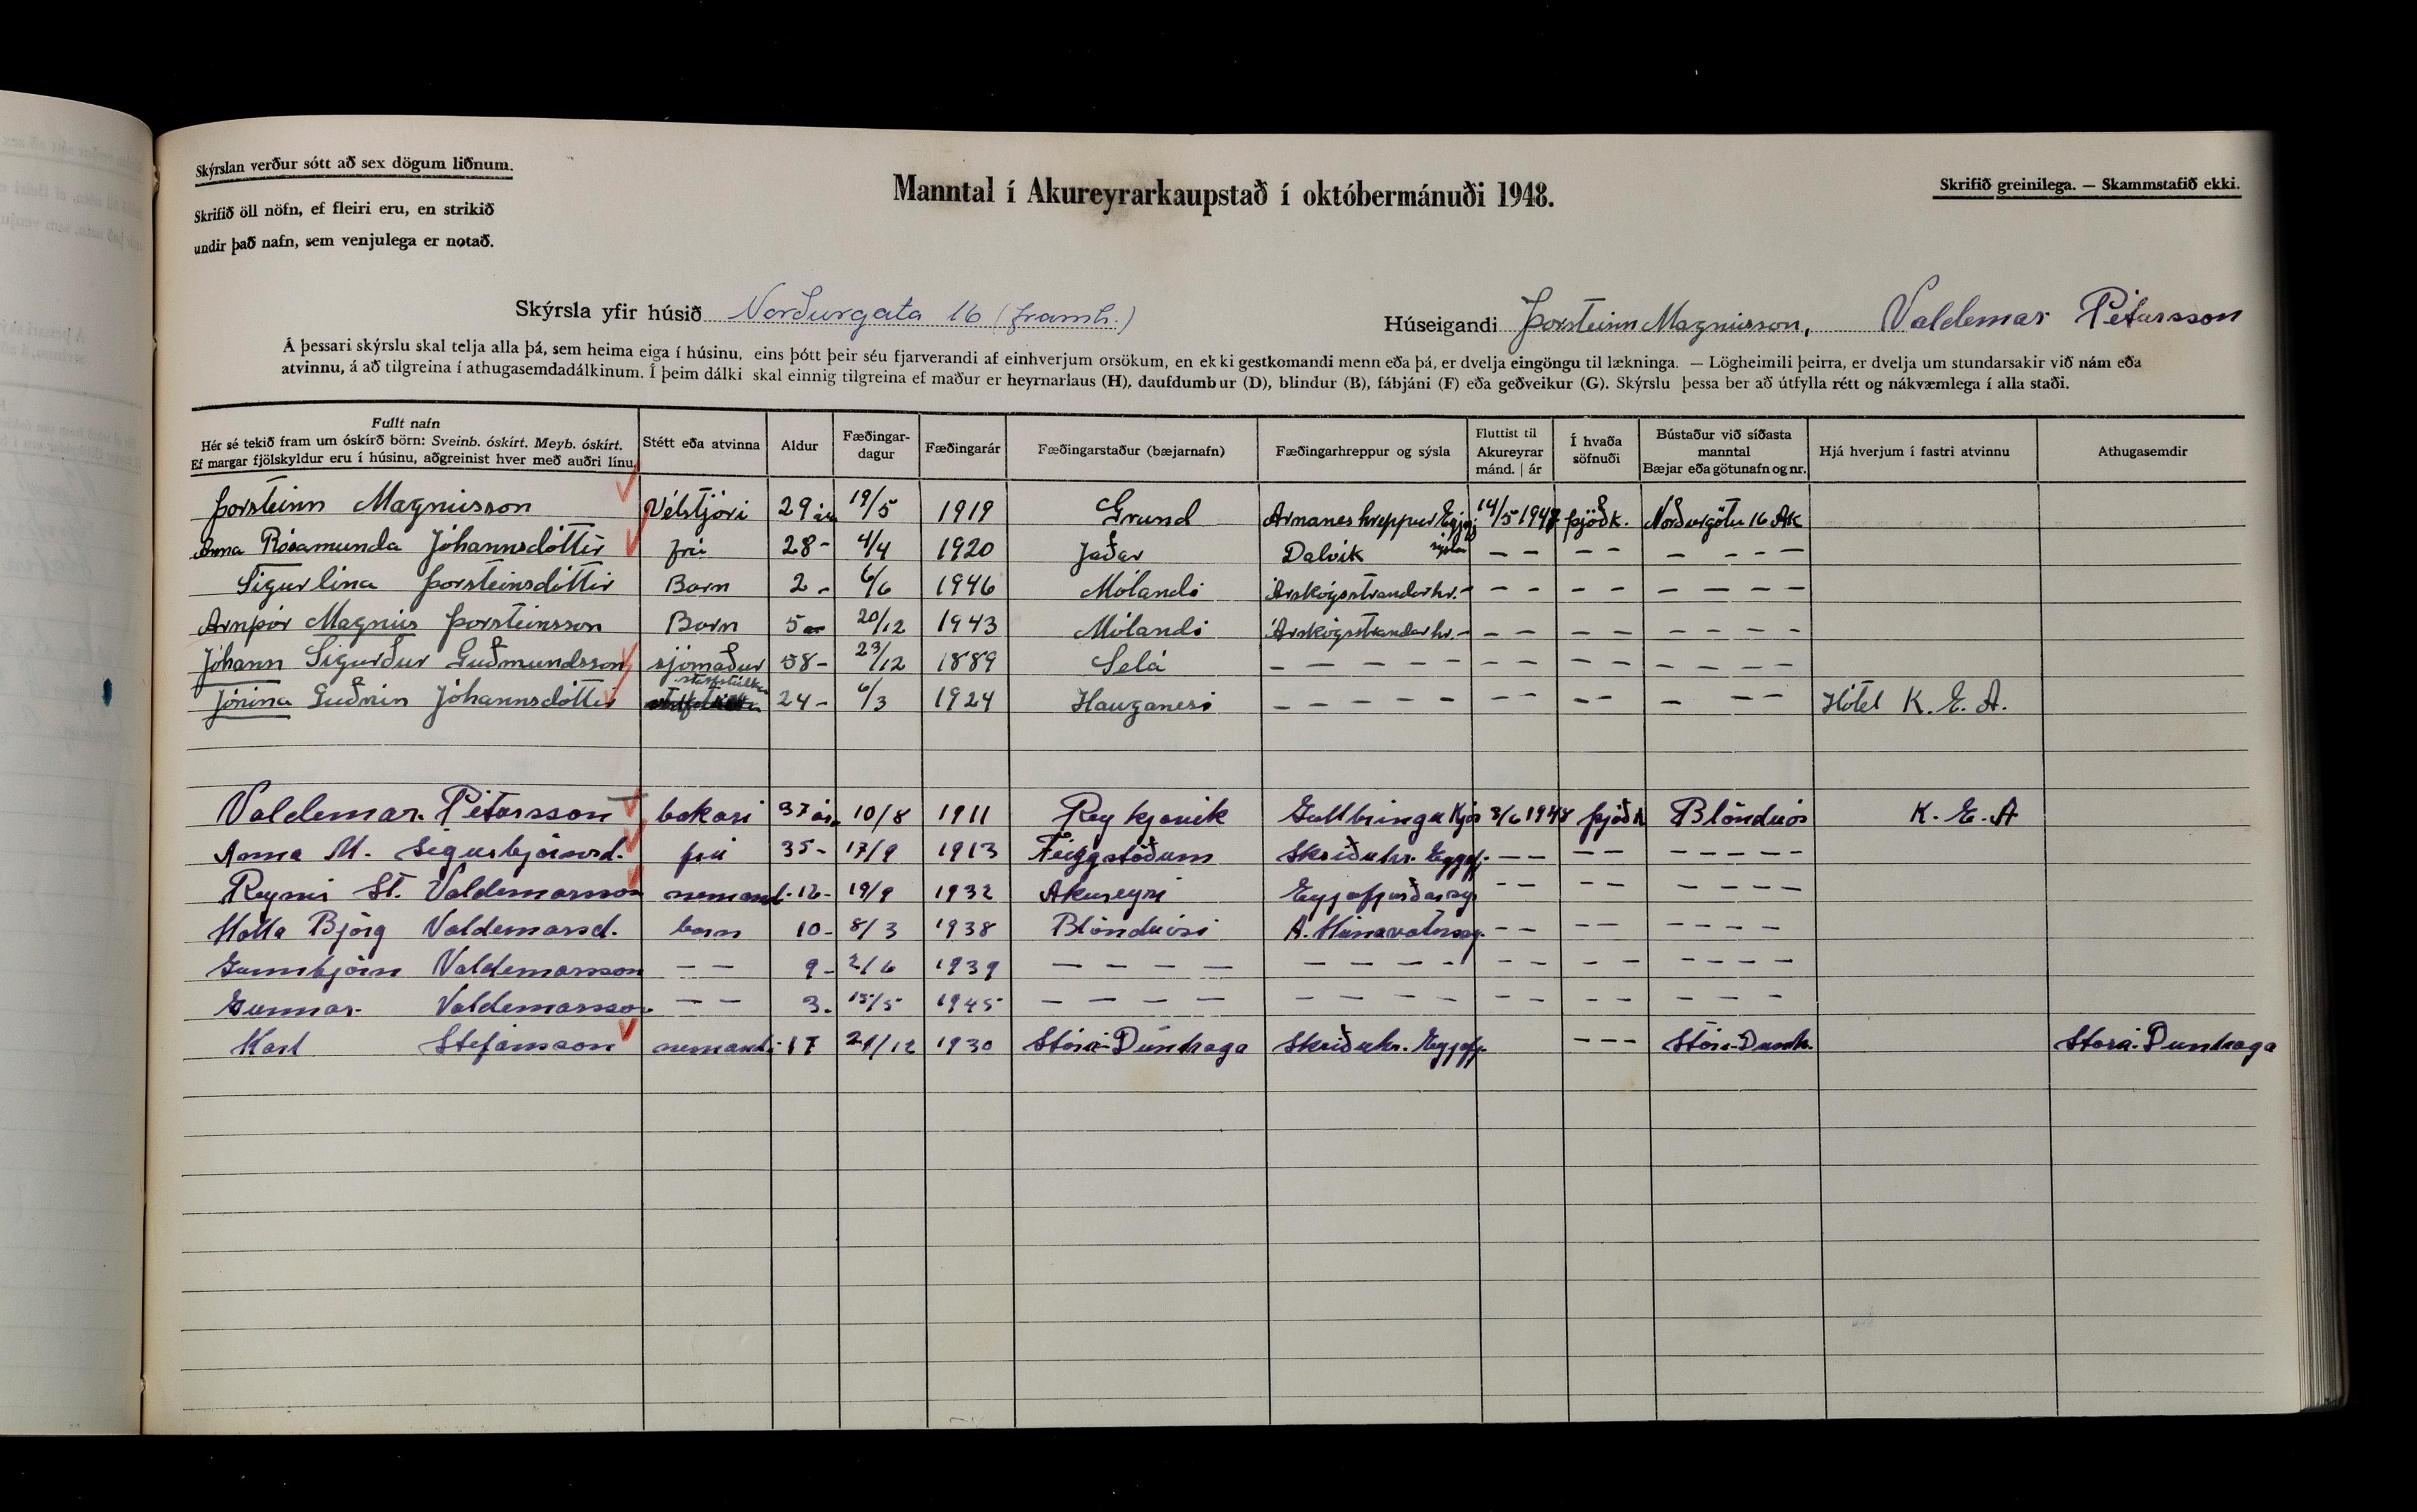 Skýrslan verður sótt að sex dögum liðnum.
Skrifið öll nöfn, ef fleiri eru, en strikið
undir það nafn, sem venjulega er notað.
Manntal í Akureyrarkaupstað í októbermánuði 1948.
Skrifið greinilega. — Skammstafið ekki.
Skýrsla yfir húsið Norðurgata 16 (framh.)
Húseigandi Þorsteinn Magnússon, Valdemar Pétursson
Á þessari skýrslu skal telja alla þá, sem heima eiga í húsinu, eins þótt þeir séu fjarverandi af einhverjum orsökum, en ekki gestkomandi menn eða þá, er dvelja eingöngu til lækninga. — Lögheimili þeirra, er dvelja um stundarsakir við nám eða
atvinnu, á að tilgreina í athugasemdadálkinum. Í þeim dálki skal einnig tilgreina ef maður er heyrnarlaus (H), daufdumbur (D), blindur (B), fábjáni (F) eða geðveikur (G). Skýrslu þessa ber að útfylla rétt og nákvæmlega í alla staði.
Fullt nafn
Hér sé tekið fram um óskírð börn: Sveinb. óskírt. Meyb. óskírt.
Ef margar fjölskyldur eru í húsinu, aðgreinist hver með auðri línu.
Stétt eða atvinna
Aldur
Fæðingar-
dagur
Fæðingarár
Fæðingarstaður (bæjarnafn)
Fæðingarhreppur og sýsla
Fluttist til
Akureyrar
mánd. | ár
Í hvaða
söfnuði
Bústaður við síðasta
manntal
Bæjar eða götunafn og nr.
Hjá hverjum í fastri atvinnu
Athugasemdir
Þorsteinn Magnússon Vélstjóri 29 ár 19/5 1919 Grund Arnaneshreppur Eyjafj. sýsla 14/5 1947 þjóðk. Norðurgötu 16 AK
Anna Rósamunda Jóhannsdóttir frú 28 - 4/4 1920 Jaðar Dalvík — — — — — — — —
Sigurlína Þorsteinsdóttir Barn 2 - 6/6 1946 Mólandi Árskógsstrandarhr. — — — — — — — — —
Arnþór Magnús Þorsteinsson Barn 5 - 20/12 1943 Mólandi Árskógsstrandarhr. — — — — — — — — —
Jóhann Sigurður Guðmundsson sjómaður 58 - 23/12 1889 Selá — — — — — — — — — — — — —
Jónína Guðrún Jóhannsdóttir starfstúlka 24 - 6/3 1924 Hauganesi — — — — — — — — — — — — Hótel K. E. A.
Valdemar Pétursson bakari 37 ára 10/8 1911 Reykjavík Gullbringu Kjós 3/6 1948 þjóðk Blönduós K. E. A
Anna M. Sigurbjörnsd. frú 35 - 17/9 1913 Féeggstöðum Skriðuhr. Eyjafj. — — — — — — — — —
Reynir St. Valdemarsson nemand. 16 - 19/9 1932 Akureyri Eyjafjarðarsy — — — — — — — —
Halla Björg Valdemarsd. barn 10 - 8/3 1938 Blönduósi A. Húnavatnssy. — — — — — — — —
Gunnbjörn Valdemarsson — — 9 - 2/6 1939 — — — — — — — — — — — — — — — — —
Gunnar Valdemarsson — — 3. 15/5 1945 — — — — — — — — — — — — — — — —
Karl Stefánsson nemandi 17 21/12 1930 Stóri-Dunhaga Skriðuhr. Eyjafj. — — — Stóri-Dunh. Stóra-Dunhaga